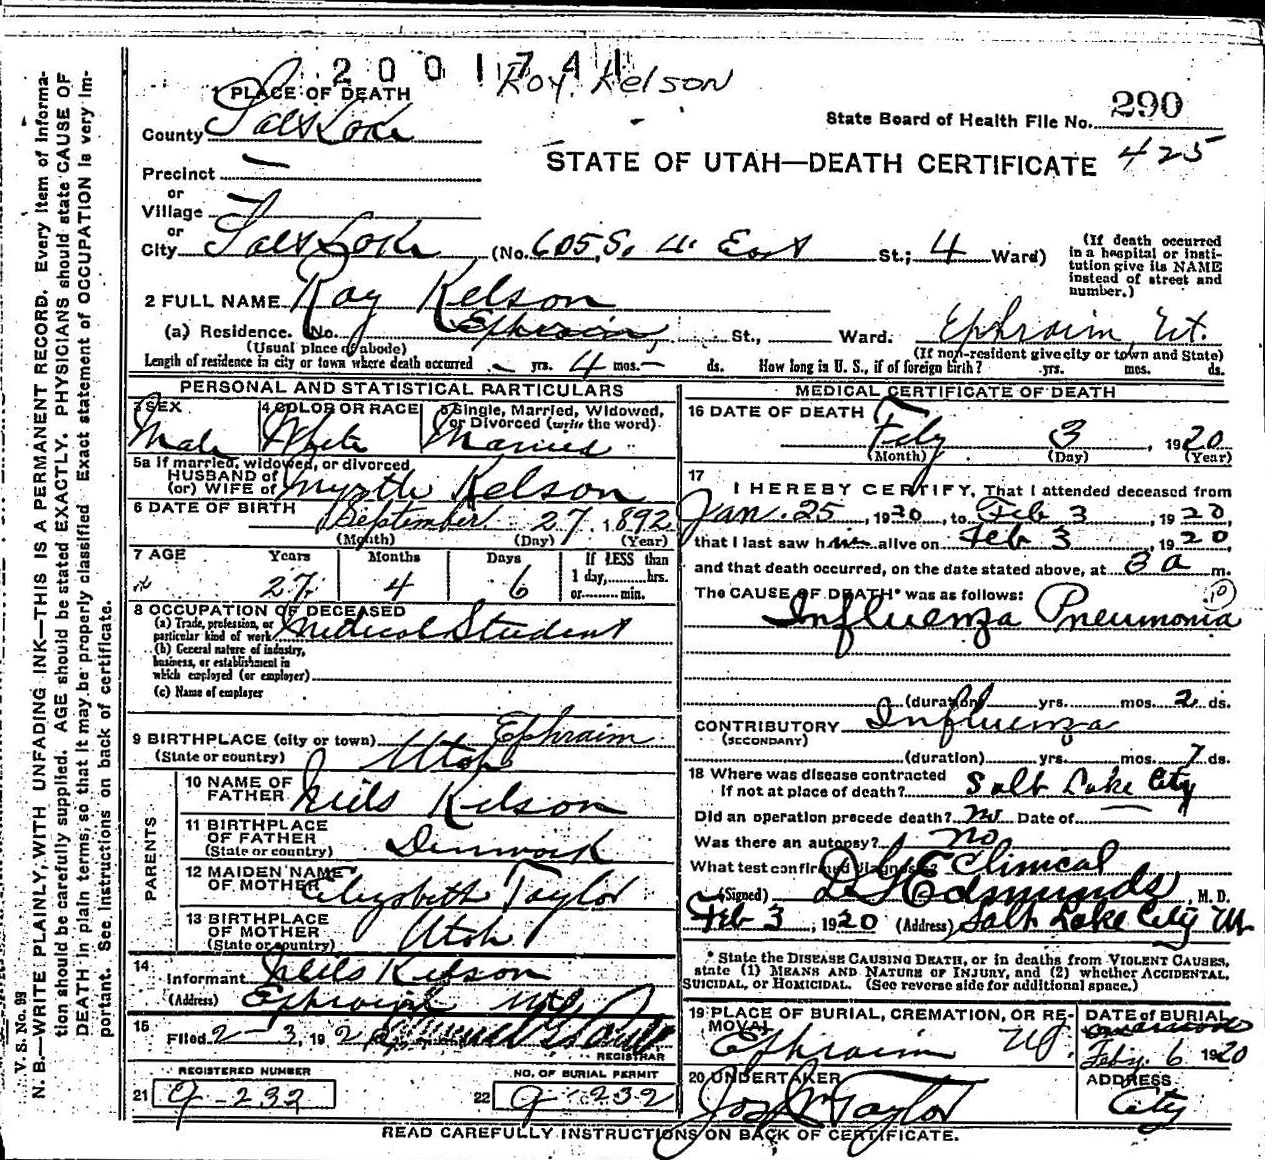 2001741
Roy Kelson
1 PLACE OF DEATH
County Salt Lake
State Board of Health File No. 290
425
STATE OF UTAH—DEATH CERTIFICATE
Precinct —
or
Village —
or
City Salt Lake (No. 605 S. 4 East St.; 4 Ward)
(If death occurred in a hospital or institution give its NAME instead of street and number.)
2 FULL NAME Ray Kelson
(a) Residence. No. Ephraim, St., Ward. Ephraim, Ut.
(Usual place of abode) (If non-resident give city or town and State)
Length of residence in city or town where death occurred — yrs. 4 mos. — ds. How long in U. S., if of foreign birth? yrs. mos. ds.
PERSONAL AND STATISTICAL PARTICULARS
3 SEX 4 COLOR OR RACE 5 Single, Married, Widowed, or Divorced (write the word).
Male White Married
5a If married, widowed, or divorced
HUSBAND of
(or) WIFE of Myrtle Kelson
6 DATE OF BIRTH September 27, 1892
(Month) (Day) (Year)
7 AGE Years Months Days If LESS than
27 4 6 1 day,........hrs.
or........min.
8 OCCUPATION OF DECEASED
(a) Trade, profession, or
particular kind of work Medical Student
(b) General nature of industry,
business, or establishment in
which employed (or employer)
(c) Name of employer
9 BIRTHPLACE (city or town) Ephraim
(State or country) Utah
PARENTS
10 NAME OF
FATHER Neils Kelson
11 BIRTHPLACE
OF FATHER
(State or country) Denmark
12 MAIDEN NAME
OF MOTHER Elizabeth Taylor
13 BIRTHPLACE
OF MOTHER
(State or country) Utah
14
Informant Neils Kelson
(Address) Ephraim Utah
15
Filed 2 - 3, 192
REGISTRAR
REGISTERED NUMBER NO. OF BURIAL PERMIT
21 9-232 22 9-232
MEDICAL CERTIFICATE OF DEATH
16 DATE OF DEATH
Feby 3, 1920
(Month) (Day) (Year)
17
I HEREBY CERTIFY, That I attended deceased from
Jan. 25, 1920, to Feb 3, 1920,
that I last saw him alive on Feb 3, 1920,
and that death occurred, on the date stated above, at 3 a m.
The CAUSE OF DEATH* was as follows: 10
Influenza Pneumonia
(duration) yrs. mos. 2 ds.
CONTRIBUTORY Influenza
(SECONDARY)
(duration) yrs. mos. 7 ds.
18 Where was disease contracted
If not at place of death? Salt Lake City
Did an operation precede death? no Date of
Was there an autopsy? no
What test confirmed diagnosis? Clinical
(Signed) Edmunds, M. D.
Feb 3, 1920 (Address) Salt Lake City Ut
* State the DISEASE CAUSING DEATH, or in deaths from VIOLENT CAUSES,
state (1) MEANS AND NATURE OF INJURY, and (2) whether ACCIDENTAL,
SUICIDAL, or HOMICIDAL. (See reverse side for additional space.)
19 PLACE OF BURIAL, CREMATION, OR REMOVAL DATE of BURIAL
Ephraim Ut. Feby. 6 1920
20 UNDERTAKER ADDRESS
Jos Wm Taylor City
READ CAREFULLY INSTRUCTIONS ON BACK OF CERTIFICATE.
V. S. No. 99
N. B.—WRITE PLAINLY, WITH UNFADING INK—THIS IS A PERMANENT RECORD. Every item of informa-
tion should be carefully supplied. AGE should be stated EXACTLY. PHYSICIANS should state CAUSE OF
DEATH in plain terms, so that it may be properly classified. Exact statement of OCCUPATION is very im-
portant. See instructions on back of certificate.